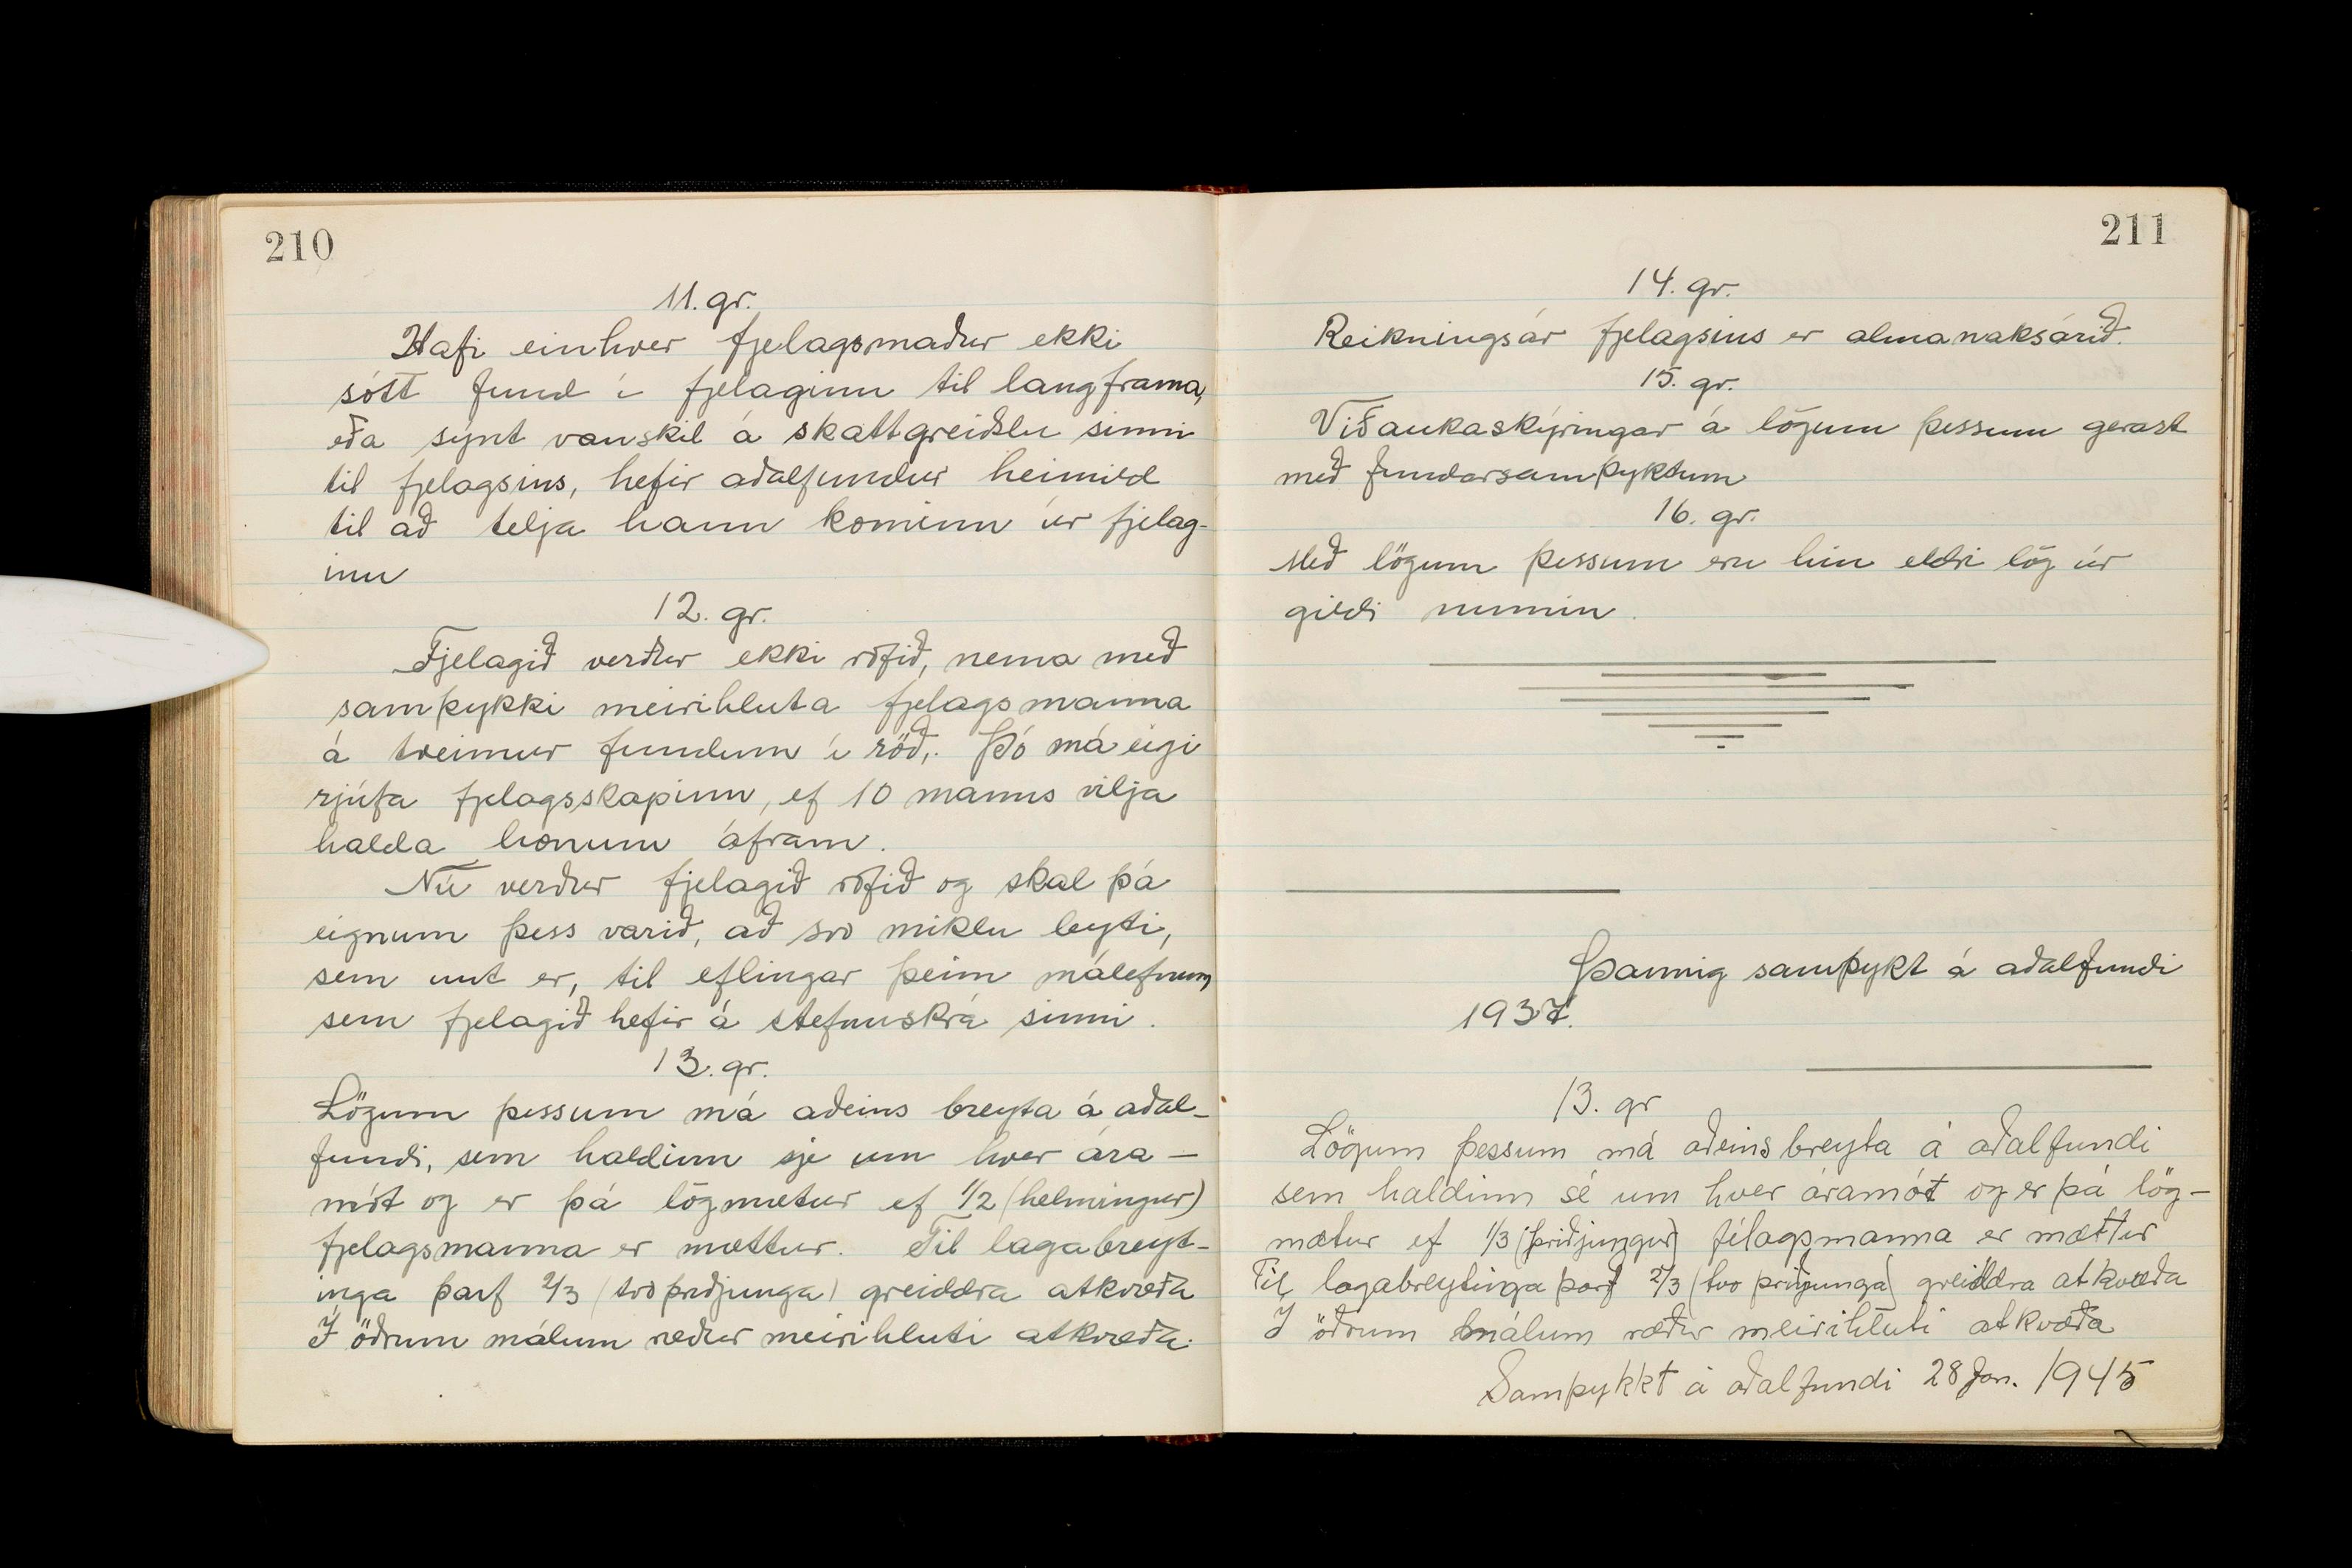 210
11. gr.
Hafi einhver fjelagsmaður ekki
sótt fund í fjelaginu til langframa,
eða sýnt vanskil á skattgreiðslu sinni
til fjelagsins, hefir aðalfundur heimild
til að telja hann kominn úr fjelag-
inu
12. gr.
Fjelagið verður ekki rofið, nema með
samþykki meirihluta fjelagsmanna
á tveimur fundum í röð,. Þó má eigi
rjúfa fjelagsskapinn, ef 10 manns vilja
halda honum áfram.
Nú verður fjelagið rofið og skal þá
eignum þess varið, að svo miklu leyti,
sem unt er, til eflingar þeim málefnum,
sem fjelagið hefir á stefnuskrá sinni.
13. gr.
Lögum þessum má aðeins breyta á aðal-
fundi, sem haldinn sje um hver ára-
mót og er þá lögmætur ef 1/2 (helmingur)
fjelagsmanna er mættur. Til lagabreyt-
inga þarf 2/3 (tvo þriðjunga) greiddra atkvæða
Í öðrum málum ræður meirihluti atkvæða.
211
14. gr.
Reikningsár fjelagsins er almanaksárið.
15. gr.
Viðaukaskýringar á lögum þessum gerast
með fundarsamþyktum
16. gr.
Með lögum þessum eru hin eldri lög úr
gildi numin.
Þannig samþykt á aðalfundi
1937.
13. gr
Lögum þessum má aðeins breyta á aðalfundi
sem haldinn sé um hver áramót og er þá lög-
mætur ef 1/3 (þriðjungur) félagsmanna er mættur
Til lagabreytinga þarf 2/3 (tvo þriðjunga) greiddra atkvæða
Í öðrum málum ræður meirihluti atkvæða
Samþykkt á aðalfundi 28 Jan. 1945